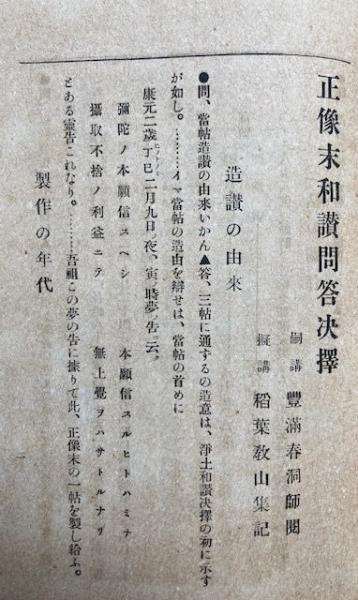 正像末和讚問答决擇
嗣講 豐滿春洞師閱
擬講 稻葉敎山集記
造讚の由來
●問、當帖造讚の由來いかん▲答、三帖に通ずるの造意は、淨土和讚决擇の初に示す
が如し。………イマ當帖の造由を辯せは、當帖の首めに
康元二歲丁巳二月九日ノ夜、寅ノ時夢ノ告ニ云ク
彌陀ノ本願信スヘシ 本願信スルヒトハミナ
攝取不捨ノ利益ニテ 無上覺ヲハサトルナリ
とある靈告これなり。………吾祖この夢の告に據りて此、正像末の一帖を製し給ふ。
製作の年代